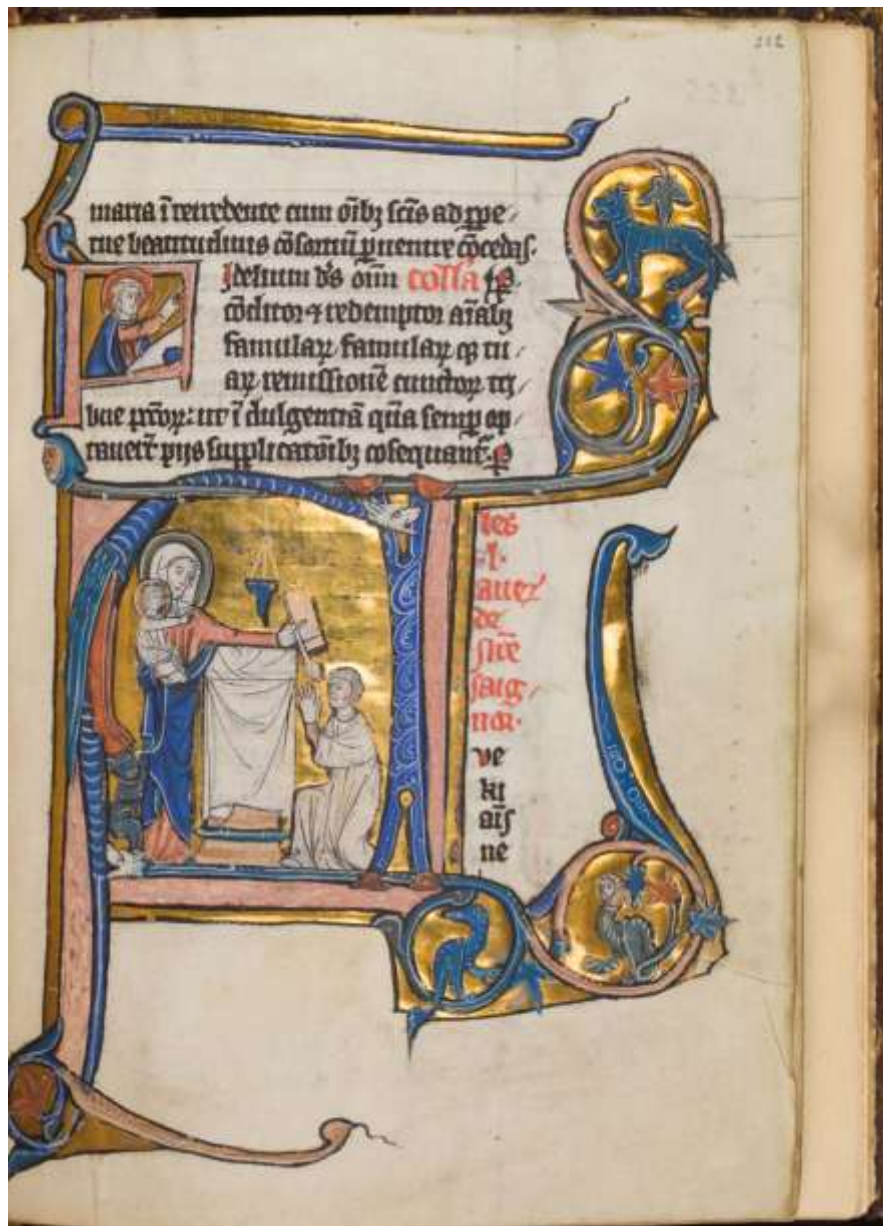 212
maria ĩtercedente cum oĩbȝ scĩs ad ꝑpe/
tue beatitudinis cõsortiũ ꝑuenire cõcedas.
Fidelium dˢ oĩm colla
cõditor ⁊ redemptor aĩabȝ
famuloꝝ famulaꝝ qȝ tu/
aꝝ remissionẽ cunctoꝝ tri
bue ꝑccõꝝ: ut ĩdulgentiã quã semꝑ op
tauerũt pijs supplicatõibȝ cõsequant᷑. ꝑ
les
.l.
auez
de
nr̃e
saig/
nor.
ve
ki
aĩs
ne